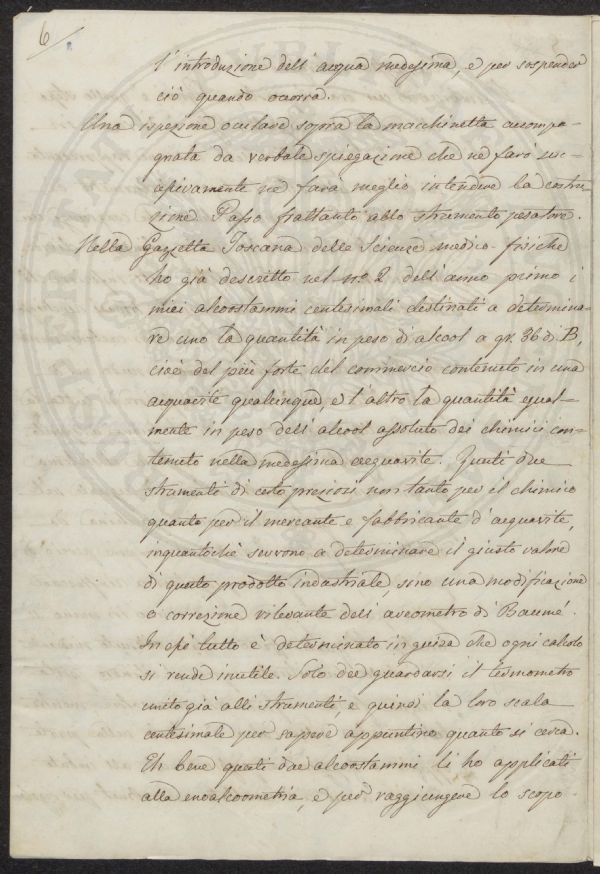 6
l'introduzione dell'acqua medesima, e per sospender
ciò quando occorra.
Una ispezione oculare sopra la macchinetta accompa-
gnata da verbale spiegazione che ne farò suc-
cessivamente ne farà meglio intendere la costru-
zione. Passo frattanto allo strumento pesatore.
Nella Gazzetta Toscana delle Scienze medico-fisiche
ho già descritto nel nº. 2 dell'anno primo i
miei alcoostammi centesimali destinati a determina-
re uno la quantità in peso di alcool a gr. 36 d. B,
cioè del più forte del commercio contenuto in una
acquavite qualunque, e l'altro la quantità egual-
mente in peso dell'alcool assoluto dei chimici con-
tenuto nella medesima acquavite. Questi due
strumenti di certo preziosi non tanto per il chimico
quanto per il mercante e fabbricante d'acquavite,
inquantochè servono a determinare il giusto valore
di questo prodotto industriale, sono una modificazione
o correzione rilevante dell'areometro di Baumé.
In essi tutto è determinato in guisa che ogni calcolo
si rende inutile. Solo dee guardarsi il termometro
unito già alli strumenti, e quindi la loro scala
centesimale per sapere appuntino quanto si cerca.
Eh bene questi due alcoostammi li ho applicati
alla enoalcoometria, e per raggiungere lo scopo